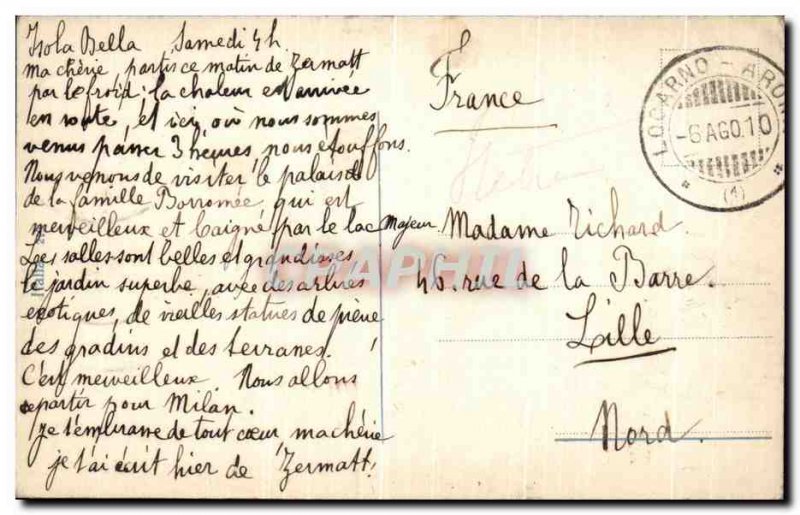 Isola Bella Samedi 4h.
ma chérie, partis ce matin de Zermatt
par le froid; la chaleur est arrivée
en route, et ici, où nous sommes
venus passer 3 heures, nous étouffons.
Nous venons de visiter le palais
de la famille Borromée qui est
merveilleux et baigné par le lac Majeur.
Les salles sont belles et grandioses
le jardin superbe, avec des arbres
exotiques, de vieilles statues de pierre
des gradins et des terrasses.
C'est merveilleux. Nous allons
repartir pour Milan.
Je t'embrasse de tout cœur, ma chérie
je t'ai écrit hier de Zermatt.
France
LOCARNO - ARON
-6 AGO.10
(1)
Madame Richard.
46. rue de la Barre.
Lille
Nord.
CPAPHIL